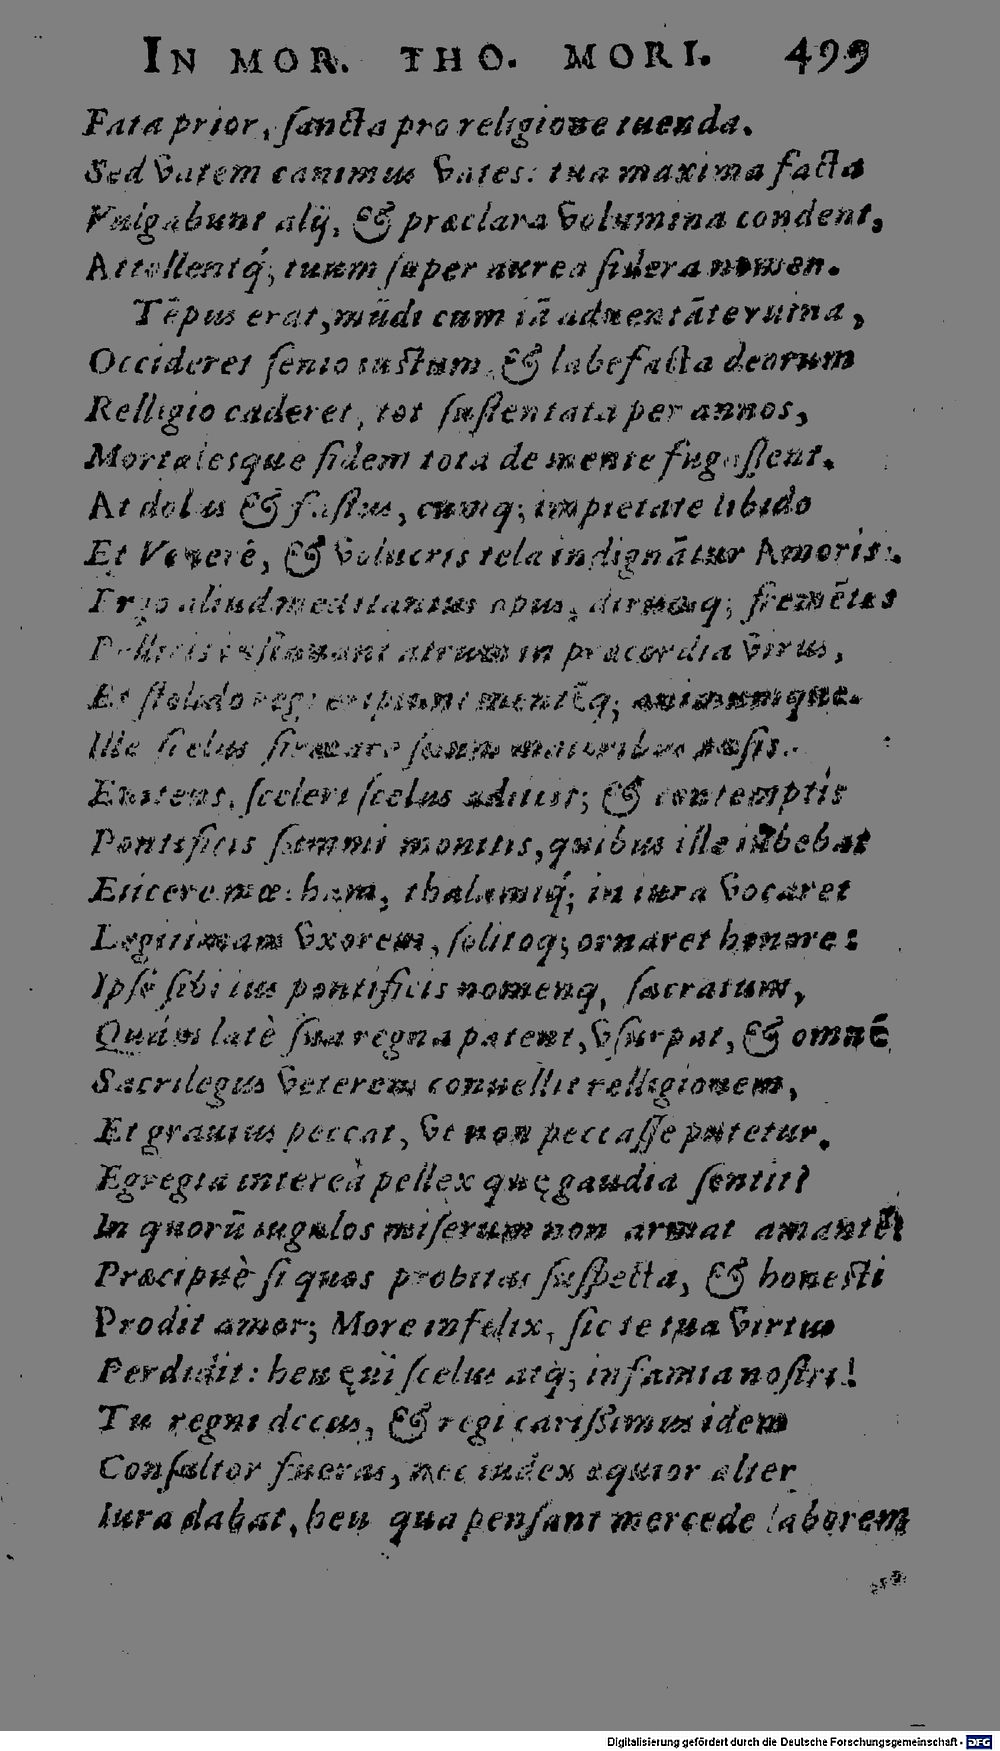 IN MOR. THO. MORI. 499
Fata prior, ſancta pro religione tuenda.
Sed vatem canimus vates: tua maxima facta
Vulgabunt alij, & præclara volumina condent,
Attollentq́; tuum ſuper aurea ſidera nomen.
Tēpus erat, mūdi cum iā aduentāte ruina,
Occideret ſenio iustum, & labefacta deorum
Relligio caderet, tot ſuſtentata per annos,
Mortalesque fidem tota de mente fugaſſent.
At dolus & faſtus, cumq; impietate libido
Et Venerē, & volucris tela indignātur Amoris:.
Ergo aliud meditantus opus, dirumq; fremētes
Pellicis instauant atrum in præcordia virus,
Et ſtolido regi eripiunt mentēq; animumque.
Ille ſcelus firmare ſuum maioribus auſis.
Enitens, ſceleri ſcelus adiicit; & contemptis
Pontificis ſummi monitis, quibus ille iubebat
Eiicere mœcham, thalamiq́; in iura vocaret
Legitimam vxorem, ſolitoq; ornaret honore:
Ipſe ſibi ius pontificis nomenq, ſacratum,
Quàm latè ſua regna patent, vſurpat, & omnē
Sacrilegus veterem conuellit relligionem,
Et grauius peccat, vt non peccaſſe putetur.
Egregia intereà pellex quę gaudia ſentit?
In quorū iugulos miſerum non armat amantē?
Præcipuè ſi quos probitas ſuſpecta, & honesti
Prodit amor; More infelix, ſic te tua virtus
Perdidit: heu ęui ſcelus atq́; infamia noſtri!
Tu regni decus, & regi cariſſimus idem
Conſultor fueras, nec iudex æquior alter
Iura dabat, heu qua penſant mercede laborem